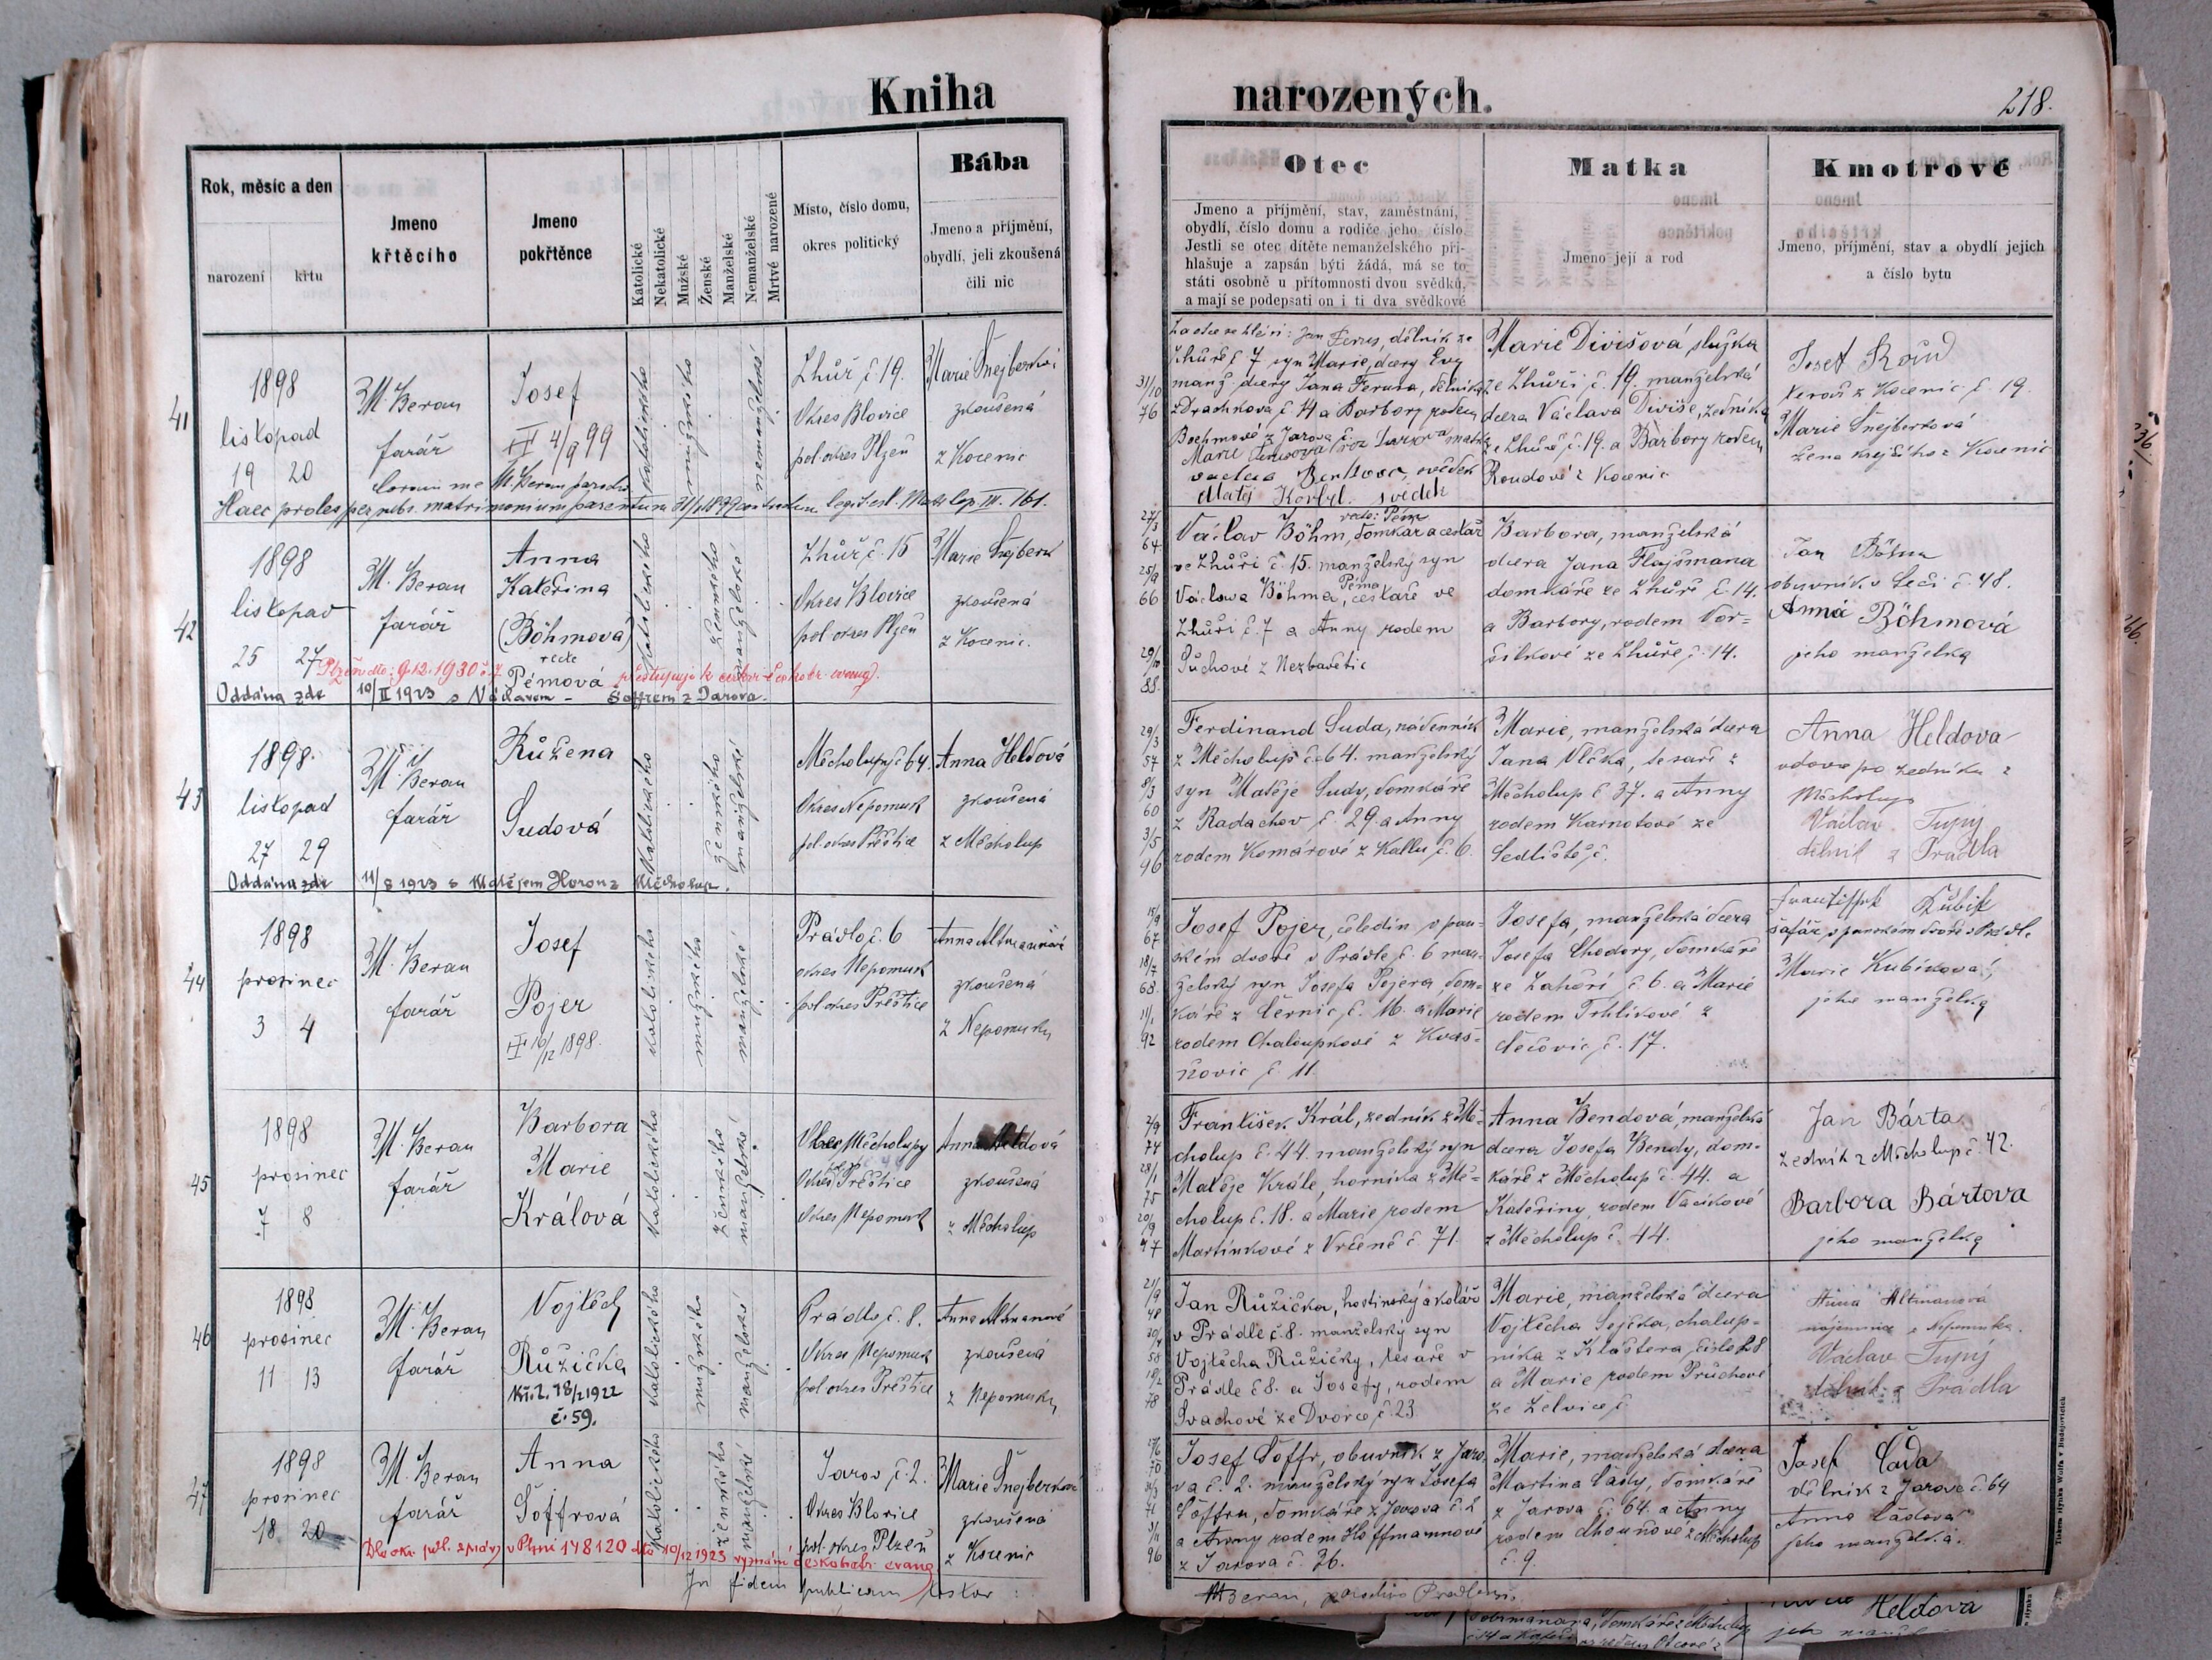 Kniha
narozených.
218.
Rok, měsíc a den
narození
křtu
Jmeno
křtěcího
Jmeno
pokřtěnce
Katolické
Nekatolické
Mužské
Ženské
Manželské
Nemanželské
Mrtvě narozené
Místo, číslo domu,
okres politický
Bába
Jmeno a příjmění,
obydlí, jeli zkoušená
čili nic
Otec
Jmeno a příjmění, stav, zaměstnání,
obydlí, číslo domu a rodiče jeho číslo
Jestli se otec dítěte nemanželského při-
hlašuje a zapsán býti žádá, má se to
státi osobně u přítomnosti dvou svědků,
a mají se podepsati on i ti dva svědkové
Matka
Jmeno její a rod
Kmotrové
Jmeno, příjmění, stav a obydlí jejich
a číslo bytu
41
1898
listopad
19 20
M. Beran
farář
Josef
4/9 99
katolického
mužského
nemanželské
Zhůř č. 19.
Okres Blovice
pol. okres Plzeň
Marie Šnejberková
zkoušená
z Kocenic
Jan Ferus, dělník ze
Zhůře č 7 syn Marie, dcery Evy
manž. dcery Jana Ferusa, dělníka
z Drachkova č. 4 a Barbory rodem
Matěj Korbyl. svědek
31/10
76
Marie Divišová služka
ze Zhůři č. 19. manželská
dcera Václava Diviše, zedníka
ze Zhůře č. 19. a Barbory rodem
Roudové z Kocenic
Josef Roud
z Kocenic č. 19.
Marie Šnejberková
žena krejčího z Kocenic
Haec proles per subs. matrimonium parentum
42
1898
listopad
25 27
M. Beran
farář
Anna
Kateřina
(Böhmová)
recte
Pěmová
katolického
ženského
manželské
Zhůř č. 15
Okres Blovice
pol. okres Plzeň
Marie Šnejberk
zkoušená
z Kocenic.
Oddána zde 10/II 1923 s Václavem Šoffrem z Jarova.
27/3
64
25/9
66
29/10
88.
recte: Pěma
Václav Böhm, domkář a cestář
ve Zhůři č. 15. manželský syn
Václava Böhma, cestáře ve
Zhůři č. 7 a Anny rodem
Šůchové z Nezbavětic
Barbora, manželská
dcera Jana Flajšmana
domkáře ze Zhůře č. 14.
a Barbory, rodem Vor=
šilkové ze Zhůře č. 14.
Jan Böhm
obuvník v Seči č. 48.
Anna Böhmová
jeho manželka
43
1898.
listopad
27 29
M. Beran
farář
Růžena
Sudová
katolického
ženského
manželské
Měcholupy č 64.
Okres Nepomuk
pol. okres Přeštice
Anna Heldová
zkoušená
z Měcholup
Oddána zde 11/8 1923 s Matějem z Měcholup.
29/3
57
8/3
60
3/5
96
Ferdinand Suda, nádenník
z Měcholup č. 64. manželský
syn Matěje Sudy, domkáře
z Radachov č. 29. a Anny
rodem Komárové z Kallu č. 6.
Marie, manželská dcera
Jana Vlčka, tesaře z
Měcholup č 37. a Anny
rodem Karnotové ze
Sedliště č.
Anna Heldova
vdova po zedníku z
Měcholup
Václav Tupý
dělník z Prádla
44
1898
prosinec
3 4
M. Beran
farář
Josef
Pojer
16/12 1898.
katolického
mužského
manželské
Prádlo č. 6
okres Nepomuk
pol. okres Přeštice
Anna Altmannová
zkoušená
z Nepomuku
15/9
67
18/7
68.
11/1
92
Josef Pojer, čeledín v pan=
ském dvoře v Prádle č. 6 man=
želský syn Josefa Pojera dom=
káře z Černic č. 16. a Marie
rodem Chaloupkové z Kvas=
ňovic č. 11
Josefa, manželská dcera
Josefa Chodory, domkáře
ze Zahoří č. 6. a Marie
rodem Trhlíkové z
č. 17.
Kubík
šafář v panském dvoře v Prádle
Marie Kubíková,
jeho manželka
45
1898
prosinec
7 8
M. Beran
farář
Barbora
Marie
Králová
katolického
ženského
manželské
Obec Měcholupy
Okres Přeštice
Okres Nepomuk
Anna Heldová
zkoušená
z Měcholup
2/9
74
28/1
75
20/9
97
František Král, zedník z Mě=
cholup č. 44. manželský syn
Matěje Krále, horníka z Mě=
cholup č. 18. a Marie rodem
Martínkové z Vrčeně č. 71.
Anna Bendová, manželská
dcera Josefa Bendy, dom=
káře z Měcholup č. 44. a
Kateřiny, rodem Vacíkové
z Měcholup č. 44.
Jan Bárta
zedník z Měcholup č. 42.
Barbora Bártova
jeho manželka
46
1898
prosinec
11 13
M. Beran
farář
Vojtěch
Růžička
Kř. l. 18/2 1922
č. 59.
katolického
mužského
manželské
Prádlo č. 8.
Okres Nepomuk
pol. okres Přeštice
Anna Altmanová
zkoušená
z Nepomuku
Jan Růžička, hostinský a kolář
v Prádle č. 8. manželský syn
Vojtěcha Růžičky, tesaře v
Prádle č 8. a Josefy, rodem
Svachové ze Dvorce č. 23.
Marie, manželská dcera
Vojtěcha Sejčka, chalup=
níka z Kláštera číslo 28
a Marie rodem Průchové
ze Želvice č
Anna Altmanová
z Nepomuka.
Václav Tupý
dělník z Prádla
47
1898
prosinec
18. 20
M. Beran
farář
Anna
Šöffrová
katolického
ženského
manželské
Jarov č. 2.
Okres Blovice
pol. okres Plzeň
Marie Šnejberková
zkoušená
z Kocenic
Josef Šöffr, obuvník z Jaro=
va č. 2. manželský syn Josefa
Šöffra, domkáře z Jarova č. 2
a Anny rodem Hoffmannové
z Jarova č. 36.
Marie, manželská dcera
Martina Čady, domkáře
z Jarova č. 64. a Anny
z Měcholup
č. 9.
Josef Čada
dělník z Jarova č. 64
Anna Čadova
jeho manželka.
In fidem publicam
M Beran,
Heldová